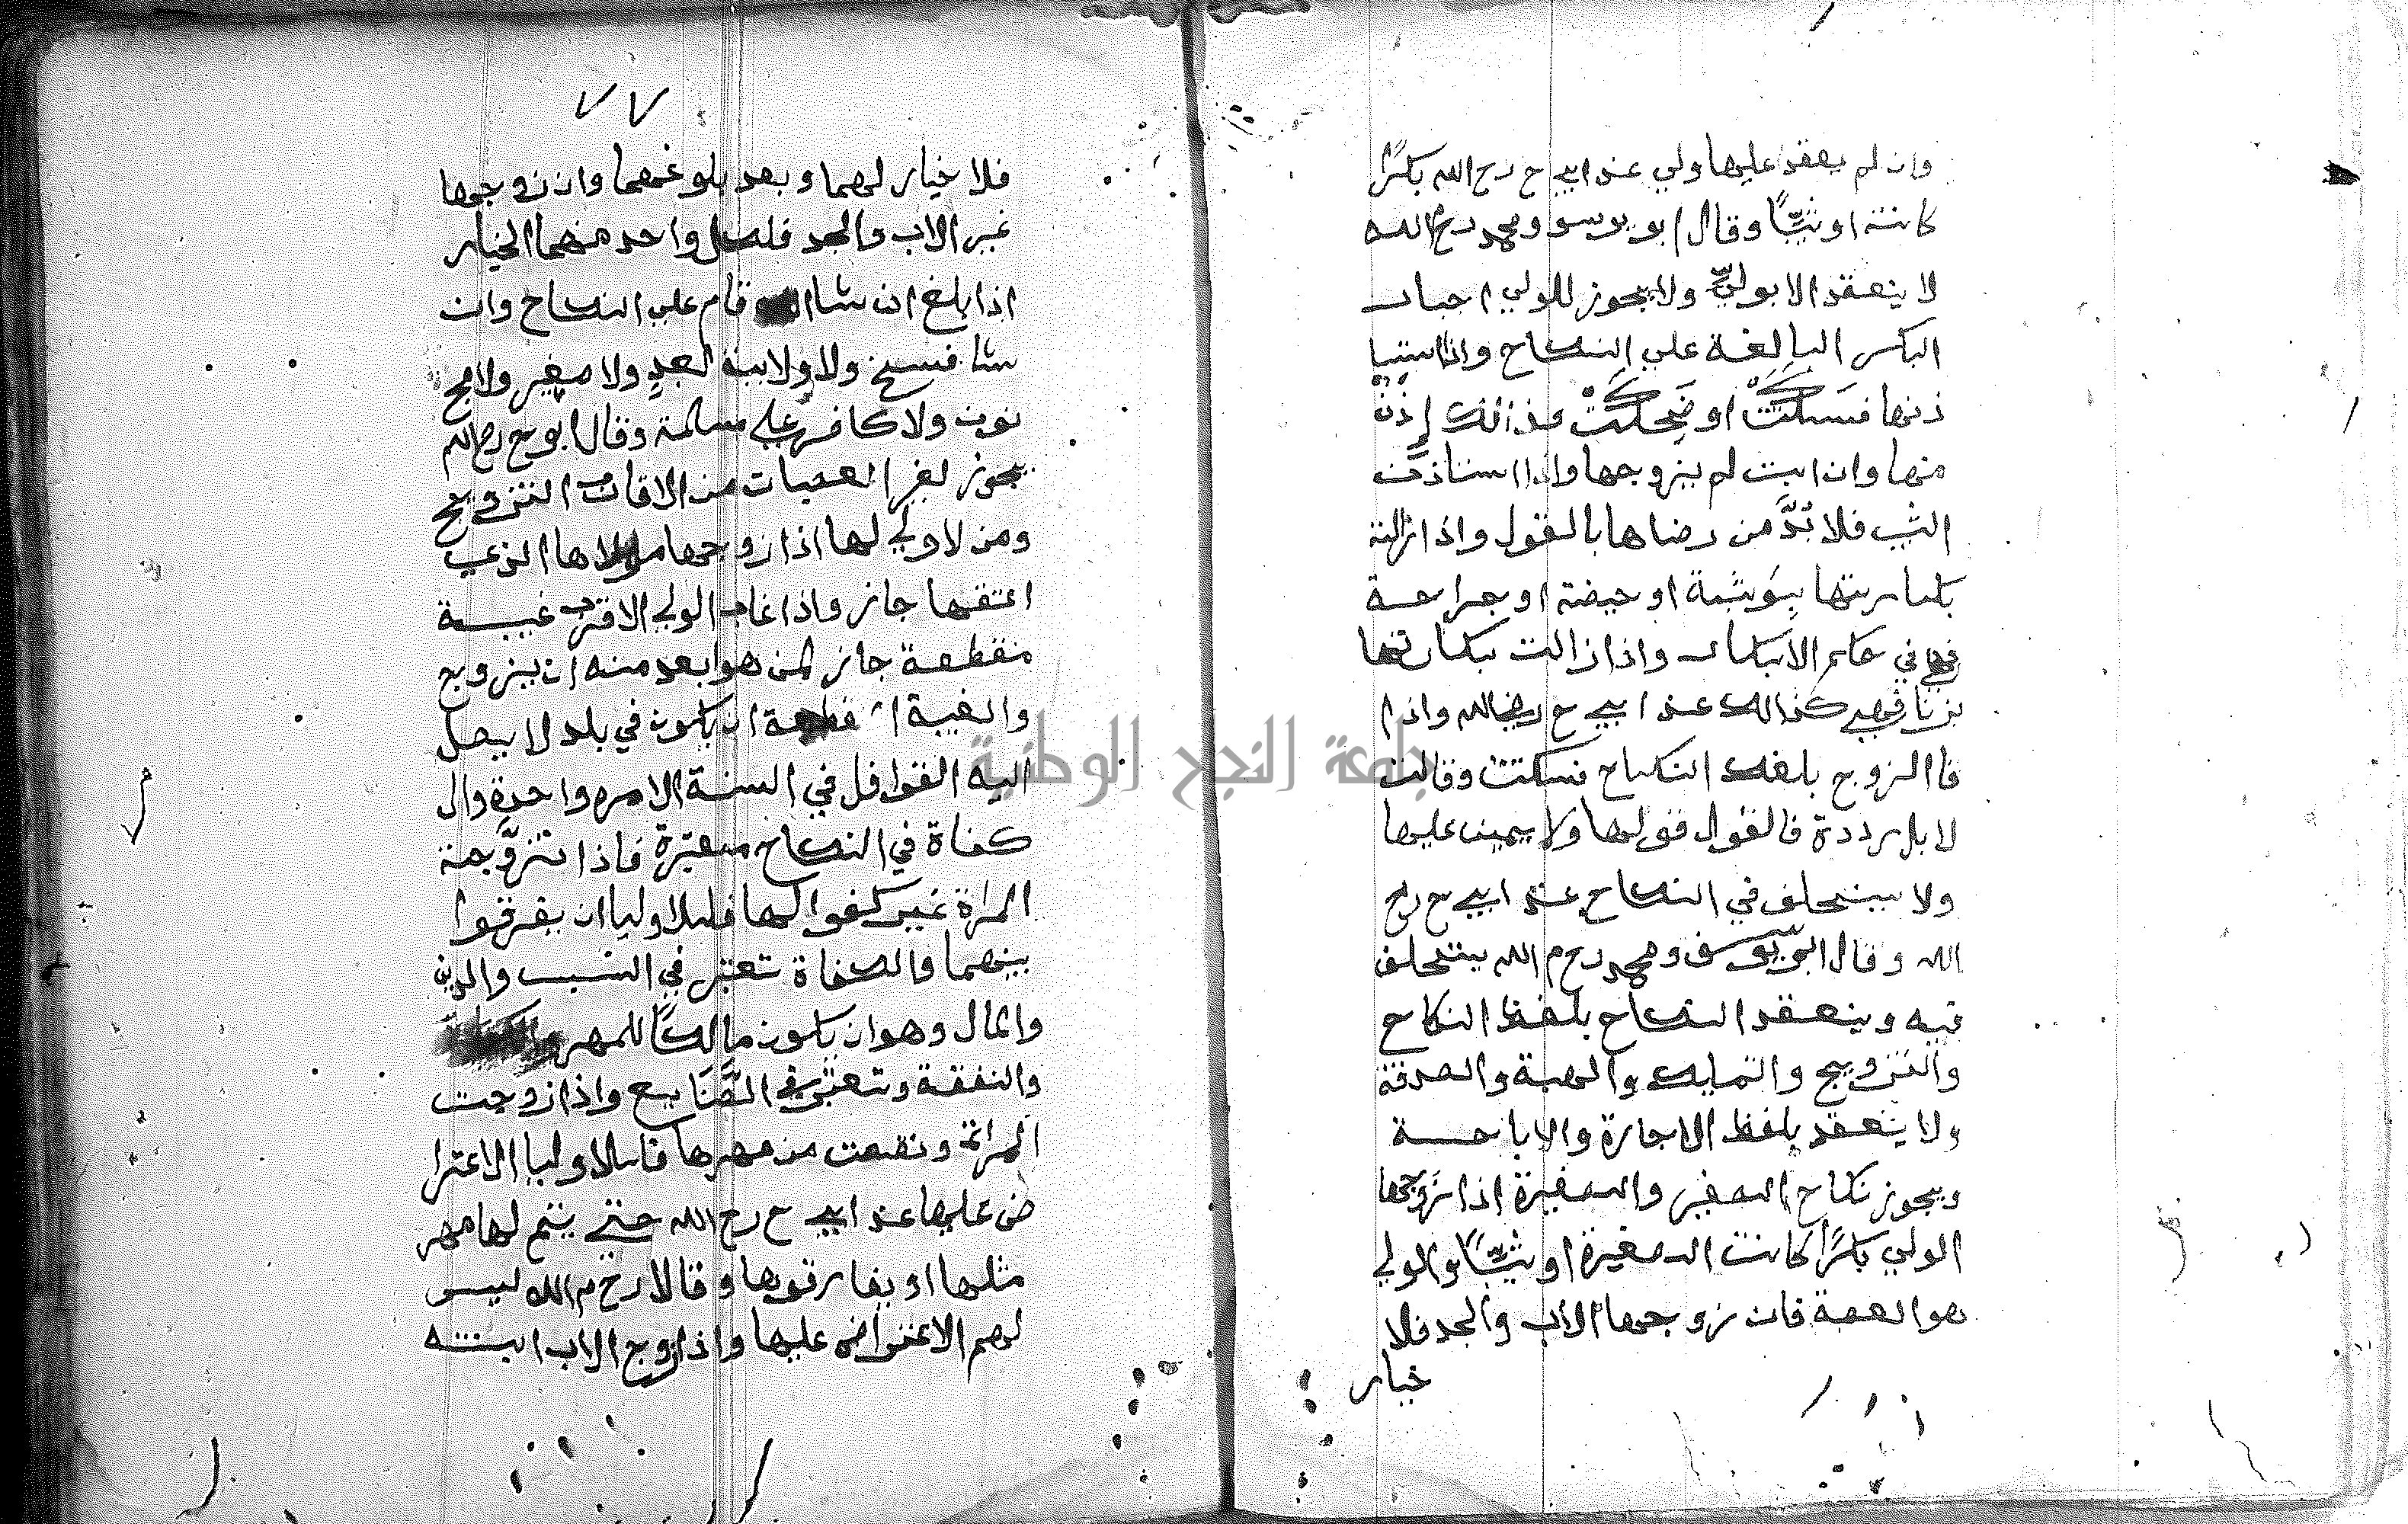 وان لم يعقد عليها ولي عند ابي ح رح الله بكرًا
كانت او ثيّبًا وقال ابو يوسو ومحمد رح الله
لا ينعقد الا بوليّ ولا يجوز للولي اجبار
البكر البالغة علي النكاح واذا استيا
ذنها فسكتت او ضحكت فذالك إذن
منها وان ابت لم يزوجها واذا استاذن
الثيب فلا بُدَّ من رضاها بالقول واذا زالت
بكارتها بوثبة او حيضة او جراحة
فهي في حكم الابكار واذا زالت بكارتها
بزنا فهي كذالك عند ابي ح رضي الله واذا
قا الزوج بلغك النكاح فسكتت وقالت
لا بل رددة فالقول قولها ولا يمين عليها
ولا يستحلف في النكاح عند ابي ح رح
الله وقال ابو يوسف ومحمد رح م الله يستحلف
فيه وينعقد النكاح بلفظ النكاح
والتزويج والتمليك والهبة والصدقة
ولا ينعقد بلفظ الاجارة والاباحة
ويجوز نكاح الصغير والصغيرة اذا تزوجها
الولي بكرًا كانت الصغيرة او ثيّبًا والولي
هو العصبة فان زوجها الاب والجد فلا
خيار
٧٧
فلا خيار لهما وبعد بلوغهما وان زوجها
غير الاب والجد فلكل واحد منهما الخيار
اذا بلغ ان شاا قام علي النكاح وان
شا فسخ ولا ولاية لعبدٍ ولا صغير ولا مج
نون ولا كافر علي مسلمة وقال ابو ح رح الله
يجوز لغير العصبات من الاقارب التزويج
ومن لا ولي لها اذا زوجها مولاها الذي
اعتقها جاز واذا غاب الولي الاقرب غيبة
منقطعة جاز لمن هو ابعد منه ان يزوج
والغيبة ان يكون في بلد لا يصل
اليه القوافل في السنة الا مره واحدة وال
كفاة في النكاح معتبرة فاذا تزوّجة
المراة غير كفوا لها فللاوليا ان يفرقوا
بينهما والكفاة تعتبر في النسب والدين
والمال وهو ان يكون مالكًا للمهر
والنفقة وتعتبر في الصَّنايع واذا زوجت
المراة ونقصت من مهرها فللاوليا الاعترا
ض عليها عند ابي ح رح الله حتي يتم لها مهر
مثلها او يفارقوها وقالا رح م الله ليس
لهم الاعتراض عليها واذا زوج الاب ابنته
جامعة النجاح الوطنية